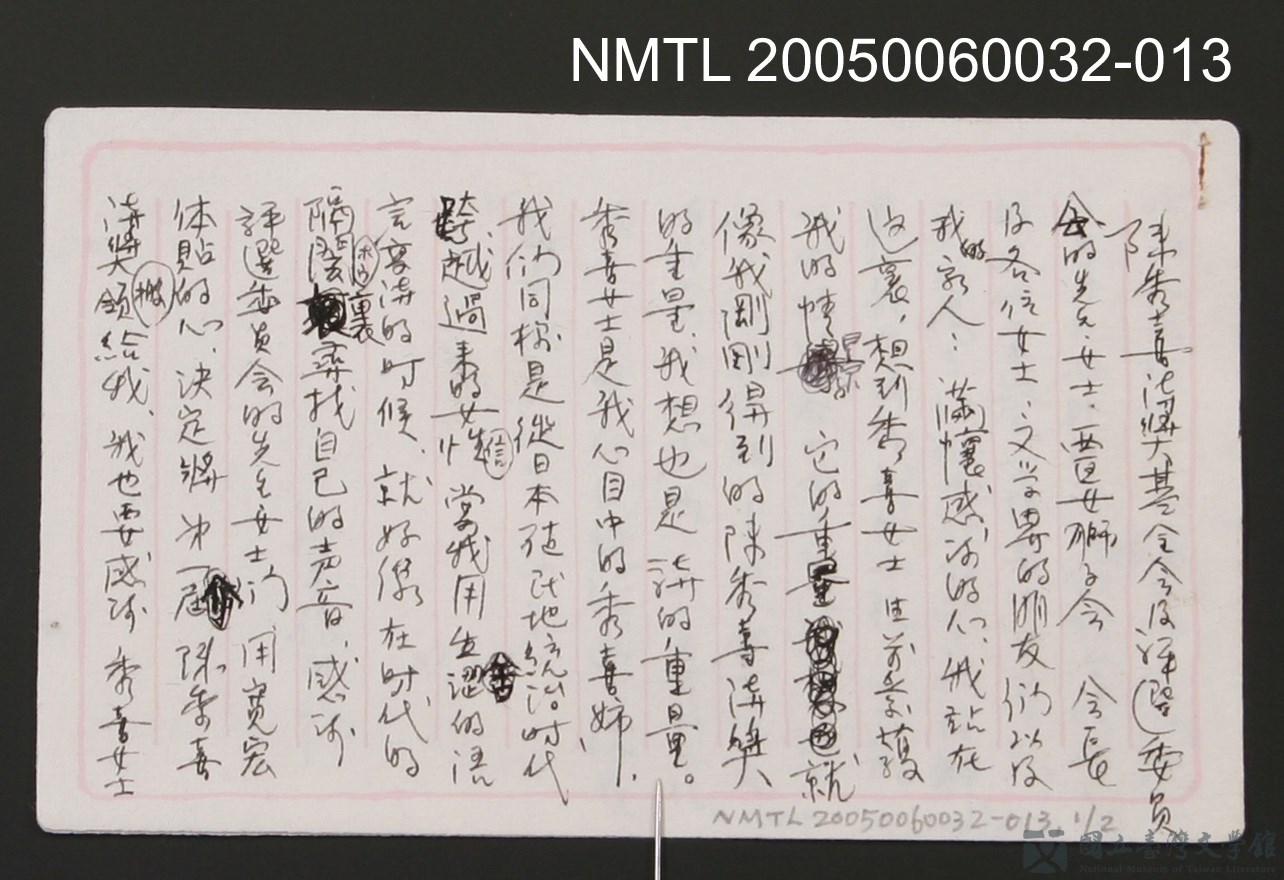 NMTL 20050060032-013
陳秀喜詩獎基金会及評選委員
会的先生女士、亜女獅子会 会長
及各位女士、文学界的朋友们以及
我的家人：滿懷感謝的心、我站在
这裏，想到秀喜女士 生前
我的情景 它的重量 就
像我剛剛得到的陳秀喜詩獎
的重量、我想也是詩的重量。
秀喜女士是我心目中的秀喜姉、
我们同樣是從日本植民地統治时代
跨越過來的女性 當我用生澀的语
言写詩的时候、就好像在时代的
隔陰裏尋找自己的声音、感謝
評選委員会的先生女士们 用寬宏
体貼的心、决定將 第一屆 陳秀喜
詩獎頒給我、我也要感謝 秀喜女士
NMTL 20050060032-013 1/2
國立臺灣文學館
National Museum of Taiwan Literature